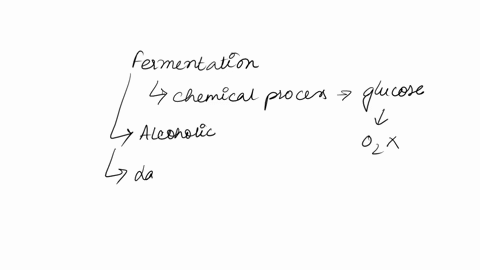 Fermentation
↳ chemical process ⇒ glucose
↓
↳ Alcoholic O₂ X
↳ da